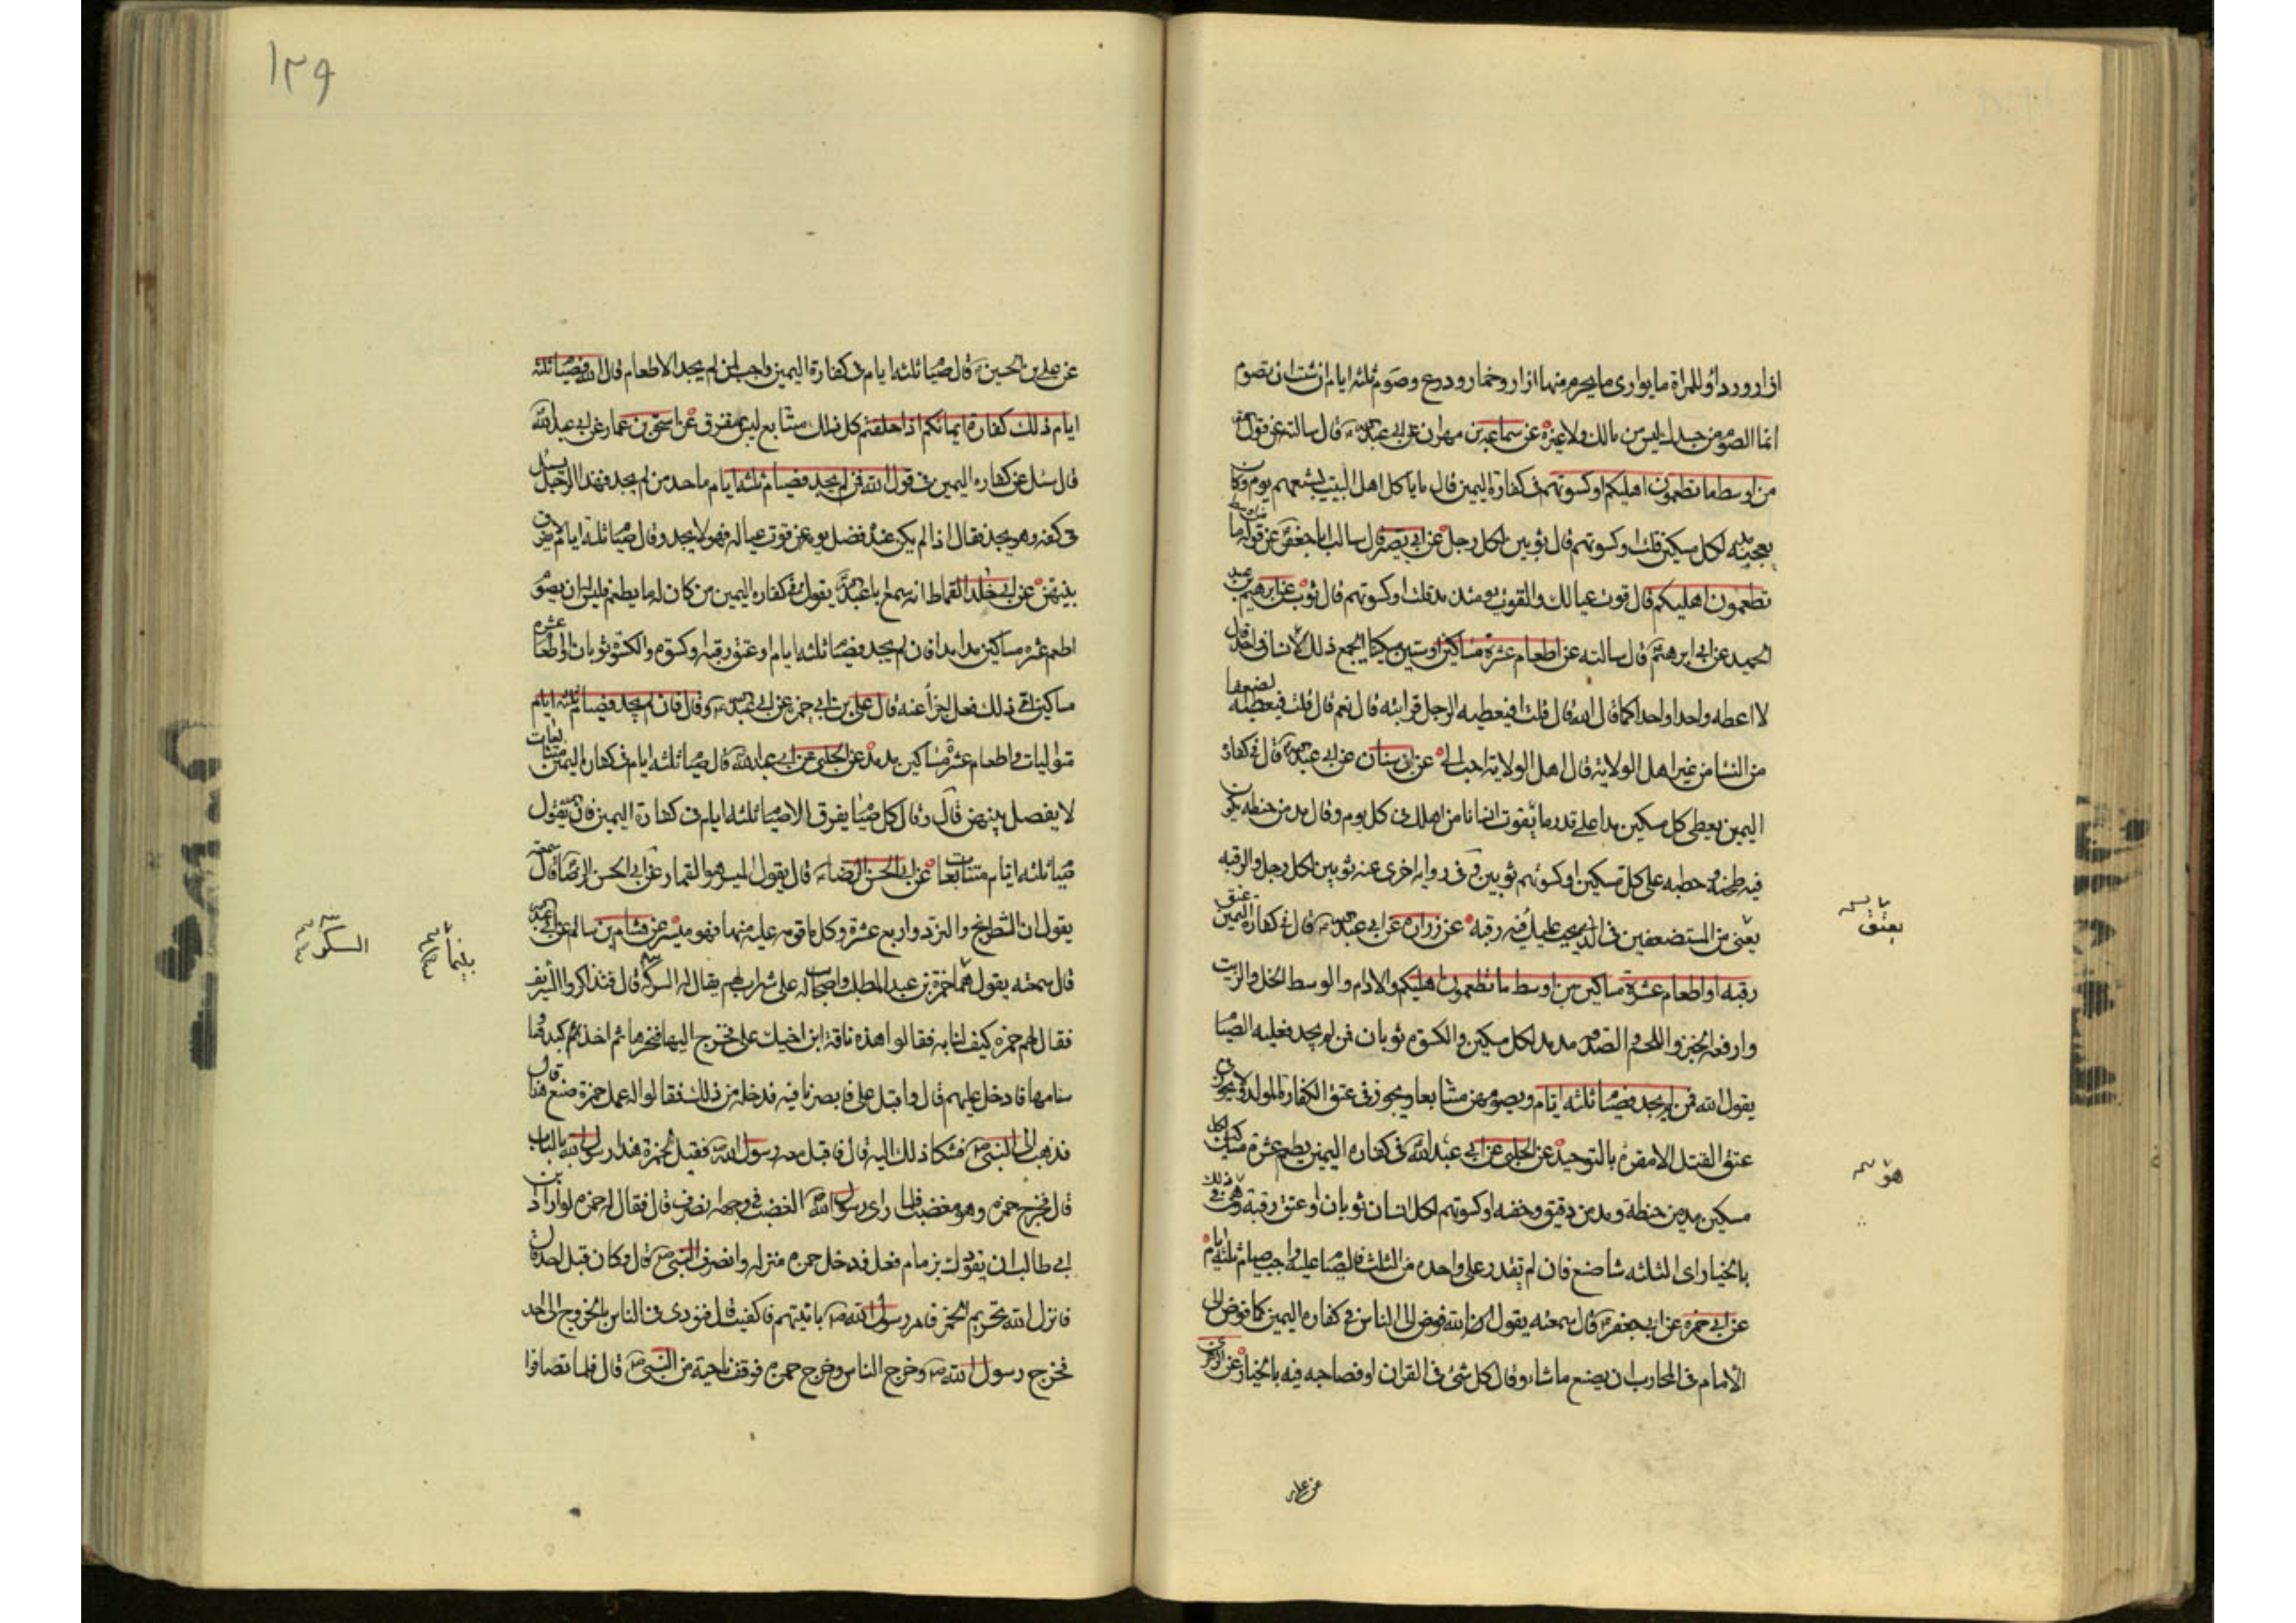 ازار ورداء وللمراة ما يوارى ما يحرم منها ازار وخمار ودرع وصوم ثلثه ايام ان شئت ان تصوم
انما الصوم من جسدك ليس من مالك ولا غيره عن سماعه بن مهران عن ابى عبد الله قال سالته عن قول الله
من اوسط ما تطعمون اهليكم او كسوتهم فى كفارة اليمين قال ما ياكل اهل البيت يشبعهم يوم وكان
يعجبه مد لكل مسكين قلت او كسوتهم قال ثوبين لكل رجل عن ابى بصير قال سالت ابا جعفر عن قوله من اوسط ما
تطعمون اهليكم قال قوت عيالك والقوت يومئذ مد قلت او كسوتهم قال ثوب عن ابرهيم بن عبد
الحميد عن ابى ابرهيم قال سالته عن اطعام عشرة مساكين او ستين مسكينا ايجمع ذلك لانسان واحد قال
لا اعطه واحدا واحدا كما قال الله قال قلت افيعطيه الرجل قرابته قال نعم قال قلت فيعطيه الضعفا
من النسا من غير اهل الولاية قال اهل الولاية احب الى عن ابن سنان عن ابى عبد الله قال فى كفارة
اليمين يعطى كل مسكين مدا على قدر ما يقوت انسانا من اهلك فى كل يوم وقال مد من حنطه يكون
فيه طحنه وحطبه على كل مسكين او كسوتهم ثوبين وفى روايه اخرى عنه ثوبين لكل رجل والرقبه
يعنى من المستضعفين فى الذى يجب عليك فيه رقبه عن زراره عن ابى عبد الله قال فى كفاره اليمين عتق
رقبه او اطعام عشرة مساكين من اوسط ما تطعمون اهليكم والادام والوسط الخل والزيت
وارفعه الخبز واللحم والصدقه مد مد لكل مسكين والكسوة ثوبان فمن لم يجد فعليه الصيام
يقول الله فمن لم يجد فصيام ثلثه ايام ويصومهن متتابعا ويجوز فى عتق الكفارة المولود ولا يجوز فى
عتق القتل الا مقرة بالتوحيد عن الحلبى عن ابى عبد الله فى كفاره اليمين يطعم عشرة مساكين لكل
مسكين مد من حنطة ومد من دقيق وحفنه او كسوتهم لكل انسان ثوبان او عتق رقبة وهو فى ذلك
بالخيار اى الثلثه شا صنع فان لم يقدر على واحده من الثلث فالصيام عليه واجب صيام ثلثه ايام
عن ابى حمزه عن ابى جعفر قال سمعته يقول ان الله فوض الى الناس فى كفاره اليمين كما فوض الى
الامام فى المحارب ان يصنع ما شاء وقال كل شئ فى القران او فصاحبه فيه بالخيار عن الزهرى
عن على
يعتق
هو
١٢٩
عن على بن الحسين قال صيام ثلثه ايام فى كفارة اليمين واجب لمن لم يجد الاطعام قال الله فصيام ثلثه
ايام ذلك كفارة ايمانكم اذا حلفتم كل ذلك متتابع ليس بمفترق عن اسحق بن عمار عن ابى عبد الله
قال سئل عن كفاره اليمين فى قول الله فمن لم يجد فصيام ثلثه ايام ما حد من لم يجد فهذا الرجل يسئل
فى كفه وهو يجد فقال اذا لم يكن عنده فضل يومه عن قوت عياله فهو لا يجد وقال صيام ثلثه ايام لا يفرق
بينهن عن ابى خلد القماط انه سمع ابا عبد الله يقول فى كفاره اليمين من كان له ما يطعم فليس له ان يصوم
اطعم عشره مساكين مدا مدا فان لم يجد فصيام ثلثه ايام او عتق رقبه او كسوة والكسوة ثوبان او اطعام عشرة
مساكين اى ذلك فعل اجزأ عنه قال على بن ابى حمزه عن ابى عبد الله وقال فان لم يجد فصيام ثلثه ايام
متواليات واطعام عشرة مساكين مد مد عن الحلبى عن ابى عبد الله قال صيام ثلثه ايام فى كفاره اليمين متتابعات
لا يفصل بينهن قال وقال كل صيام يفرق الا صيام ثلثه ايام فى كفارة اليمين فان الله يقول
صيام ثلثه ايام متتابعات عن ابى الحسن الرضا قال يقول الميسر هو القمار عن ابى الحسن الرضا قال سمعته
يقول ان الشطرنج والنرد واربع عشرة وكل ما قوم عليه منها فهو ميسر عن هشام بن سالم عن ابى عبد الله
قال سمعته يقول بينما حمزة بن عبد المطلب واصحاب له على شراب لهم يقال له السكركه قال فتذاكروا الشريف
فقال لهم حمزه كيف لنا به فقالوا هذه ناقة ابن اخيك على فخرج اليها فنحرها ثم اخذ كبدها و
سنامها فادخل عليهم قال واقبل على فابصر ناقته فدخله من ذلك فقالوا له عمك حمزة صنع هذا قال
فذهب الى النبى فشكا ذلك اليه قال فاقبل معه رسول الله فقيل لحمزة هذا رسول الله بالباب
قال فخرج حمزه وهو مغضب فلما راى رسول الله الغضب فى وجهه انصرف قال فقال له حمزه لو اراد ابن
ابى طالب ان يقودك بزمام فعل فدخل حمزه منزله وانصرف النبى قال وكان قبل احد قال
فانزل الله تحريم الخمر فامر رسول الله بانيتهم فاكفيت قال فنودى فى الناس بالخروج الى احد
فخرج رسول الله وخرج الناس وخرج حمزه فوقف ناحية من النبى قال فلما تصافوا
بينما
السكركه